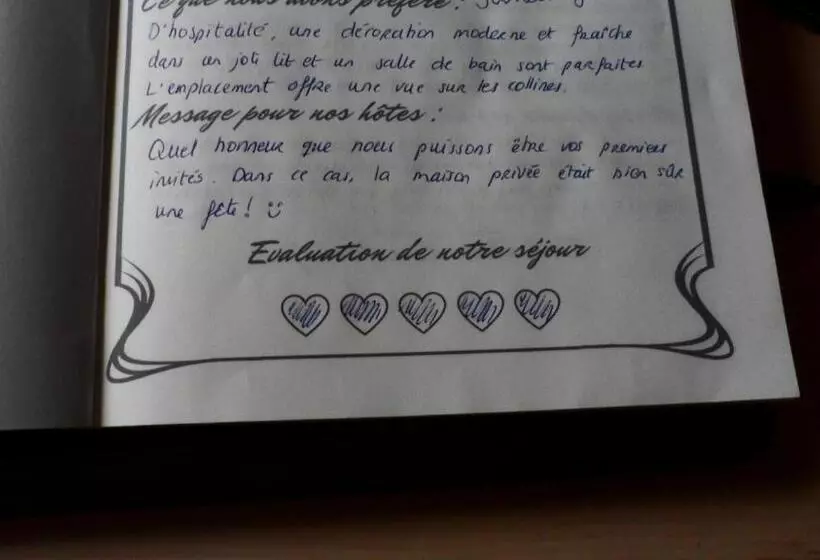 Ce que nous avons préféré :
D'hospitalité, une décoration moderne et fraîche
dans un joli lit et un salle de bain sont parfaites
L'emplacement offre une vue sur les collines.
Message pour nos hôtes :
Quel honneur que nous puissons être vos premiers
invités. Dans ce cas, la maison privée était bien sûr
une fête! :)
Evaluation de notre séjour